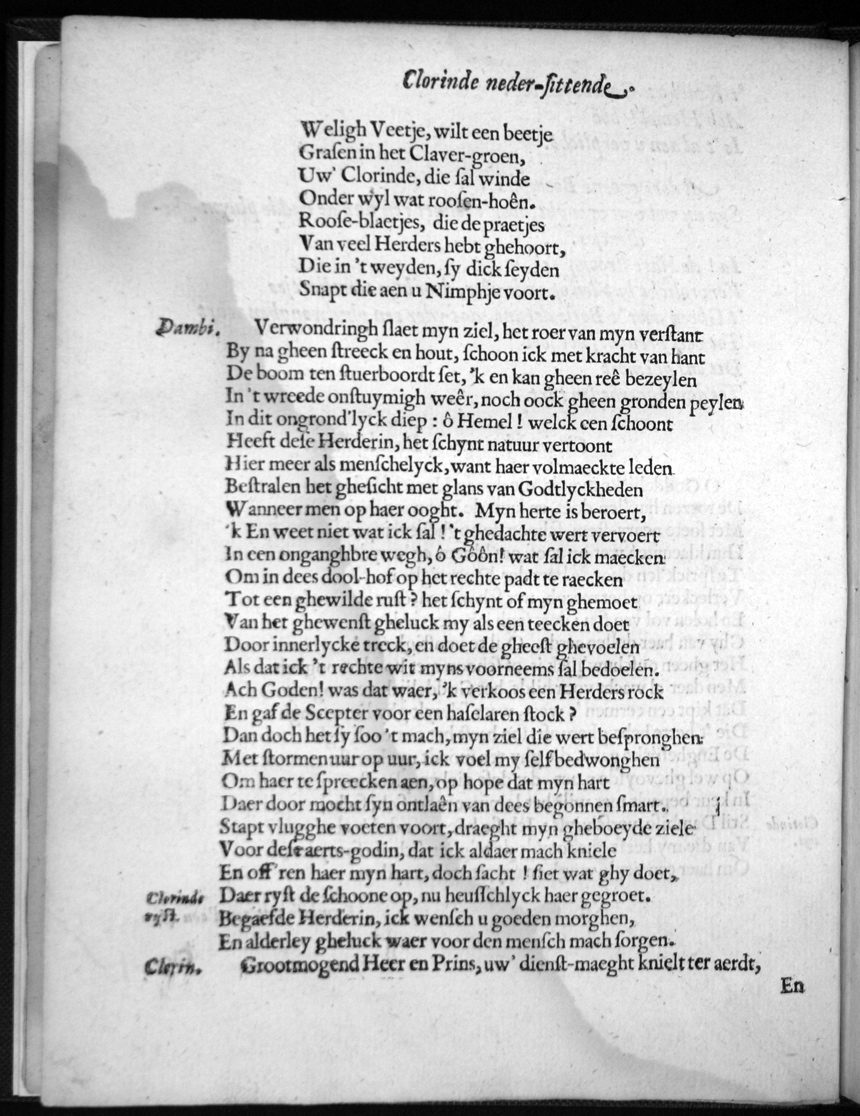 Clorinde neder-ſittende.
Weligh Veetje, wilt een beetje
Graſen in het Claver-groen,
Uw' Clorinde, die ſal winde
Onder wyl wat rooſen-hoên.
Rooſe-blaetjes, die de praetjes
Van veel Herders hebt ghehoort,
Die in 't weyden, ſy dick ſeyden
Snapt die aen u Nimphje voort.
Dambi. Verwondringh ſlaet myn ziel, het roer van myn verſtant
By na gheen ſtreeck en hout, ſchoon ick met kracht van hant
De boom ten ſtuerboordt ſet, 'k en kan gheen reê bezeylen
In 't wreede onſtuymigh weêr, noch oock gheen gronden peylen
In dit ongrond'lyck diep : ô Hemel ! welck een ſchoont
Heeft deſe Herderin, het ſchynt natuur vertoont
Hier meer als menſchelyck, want haer volmaeckte leden
Beſtralen het gheſicht met glans van Godtlyckheden
Wanneer men op haer ooght. Myn herte is beroert,
'k En weet niet wat ick ſal ! 't ghedachte wert vervoert
In een onganghbre wegh, ó Gôôn! wat ſal ick maecken
Om in dees dool-hof op het rechte padt te raecken
Tot een ghewilde ruſt ? het ſchynt of myn ghemoet
Van het ghewenſt gheluck my als een teecken doet
Door innerlycke treck, en doet de gheeſt ghevoelen
Als dat ick 't rechte wit myns voorneems ſal bedoelen.
Ach Goden! was dat waer, 'k verkoos een Herders rock
En gaf de Scepter voor een haſelaren ſtock ?
Dan doch het ſy ſoo 't mach, myn ziel die wert beſpronghen
Met ſtormen uur op uur, ick voel my ſelf bedwonghen
Om haer te ſpreecken aen, op hope dat myn hart
Daer door mocht ſyn ontlaên van dees begonnen ſmart.
Stapt vlugghe voeten voort, draeght myn gheboeyde ziele
Voor deſ' aerts-godin, dat ick aldaer mach kniele
En off'ren haer myn hart, doch ſacht ! ſiet wat ghy doet,
Clorinde ryſt. Daer ryſt de ſchoone op, nu heuſſchlyck haer gegroet.
Begaefde Herderin, ick wenſch u goeden morghen,
En alderley gheluck waer voor den menſch mach ſorgen.
Clorin. Grootmogend Heer en Prins, uw' dienſt-maeght knielt ter aerdt,
En